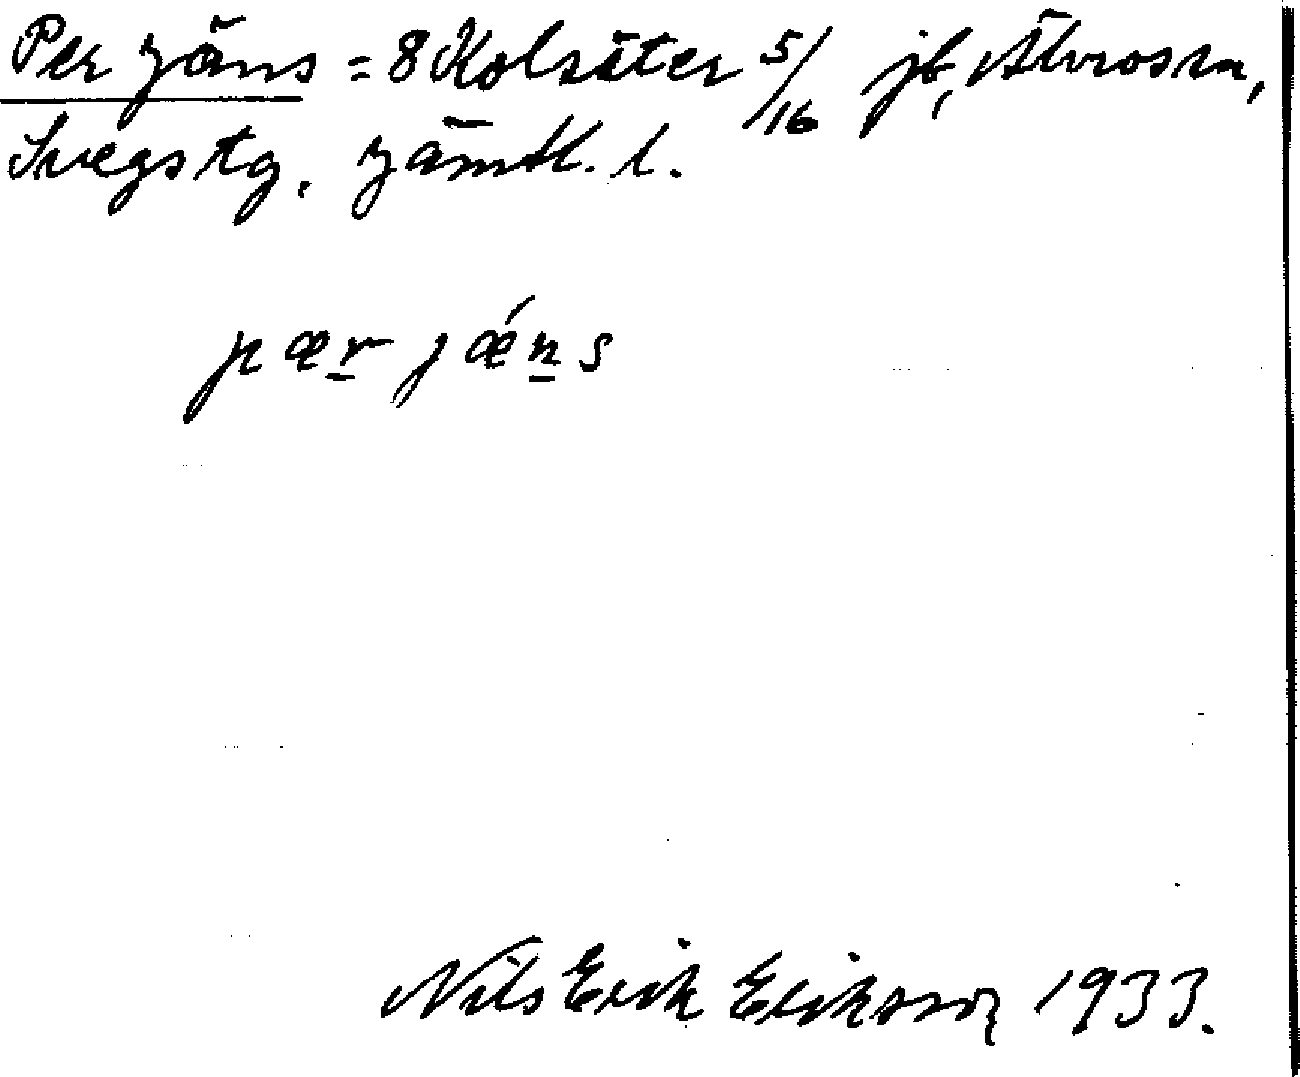 Per Jäns = 8 Kolsäter 5/16 jb, Älvros sn,
Svegs tg. Jämtl. l.
pær jǽns
Nils Erik Eriksson 1933.